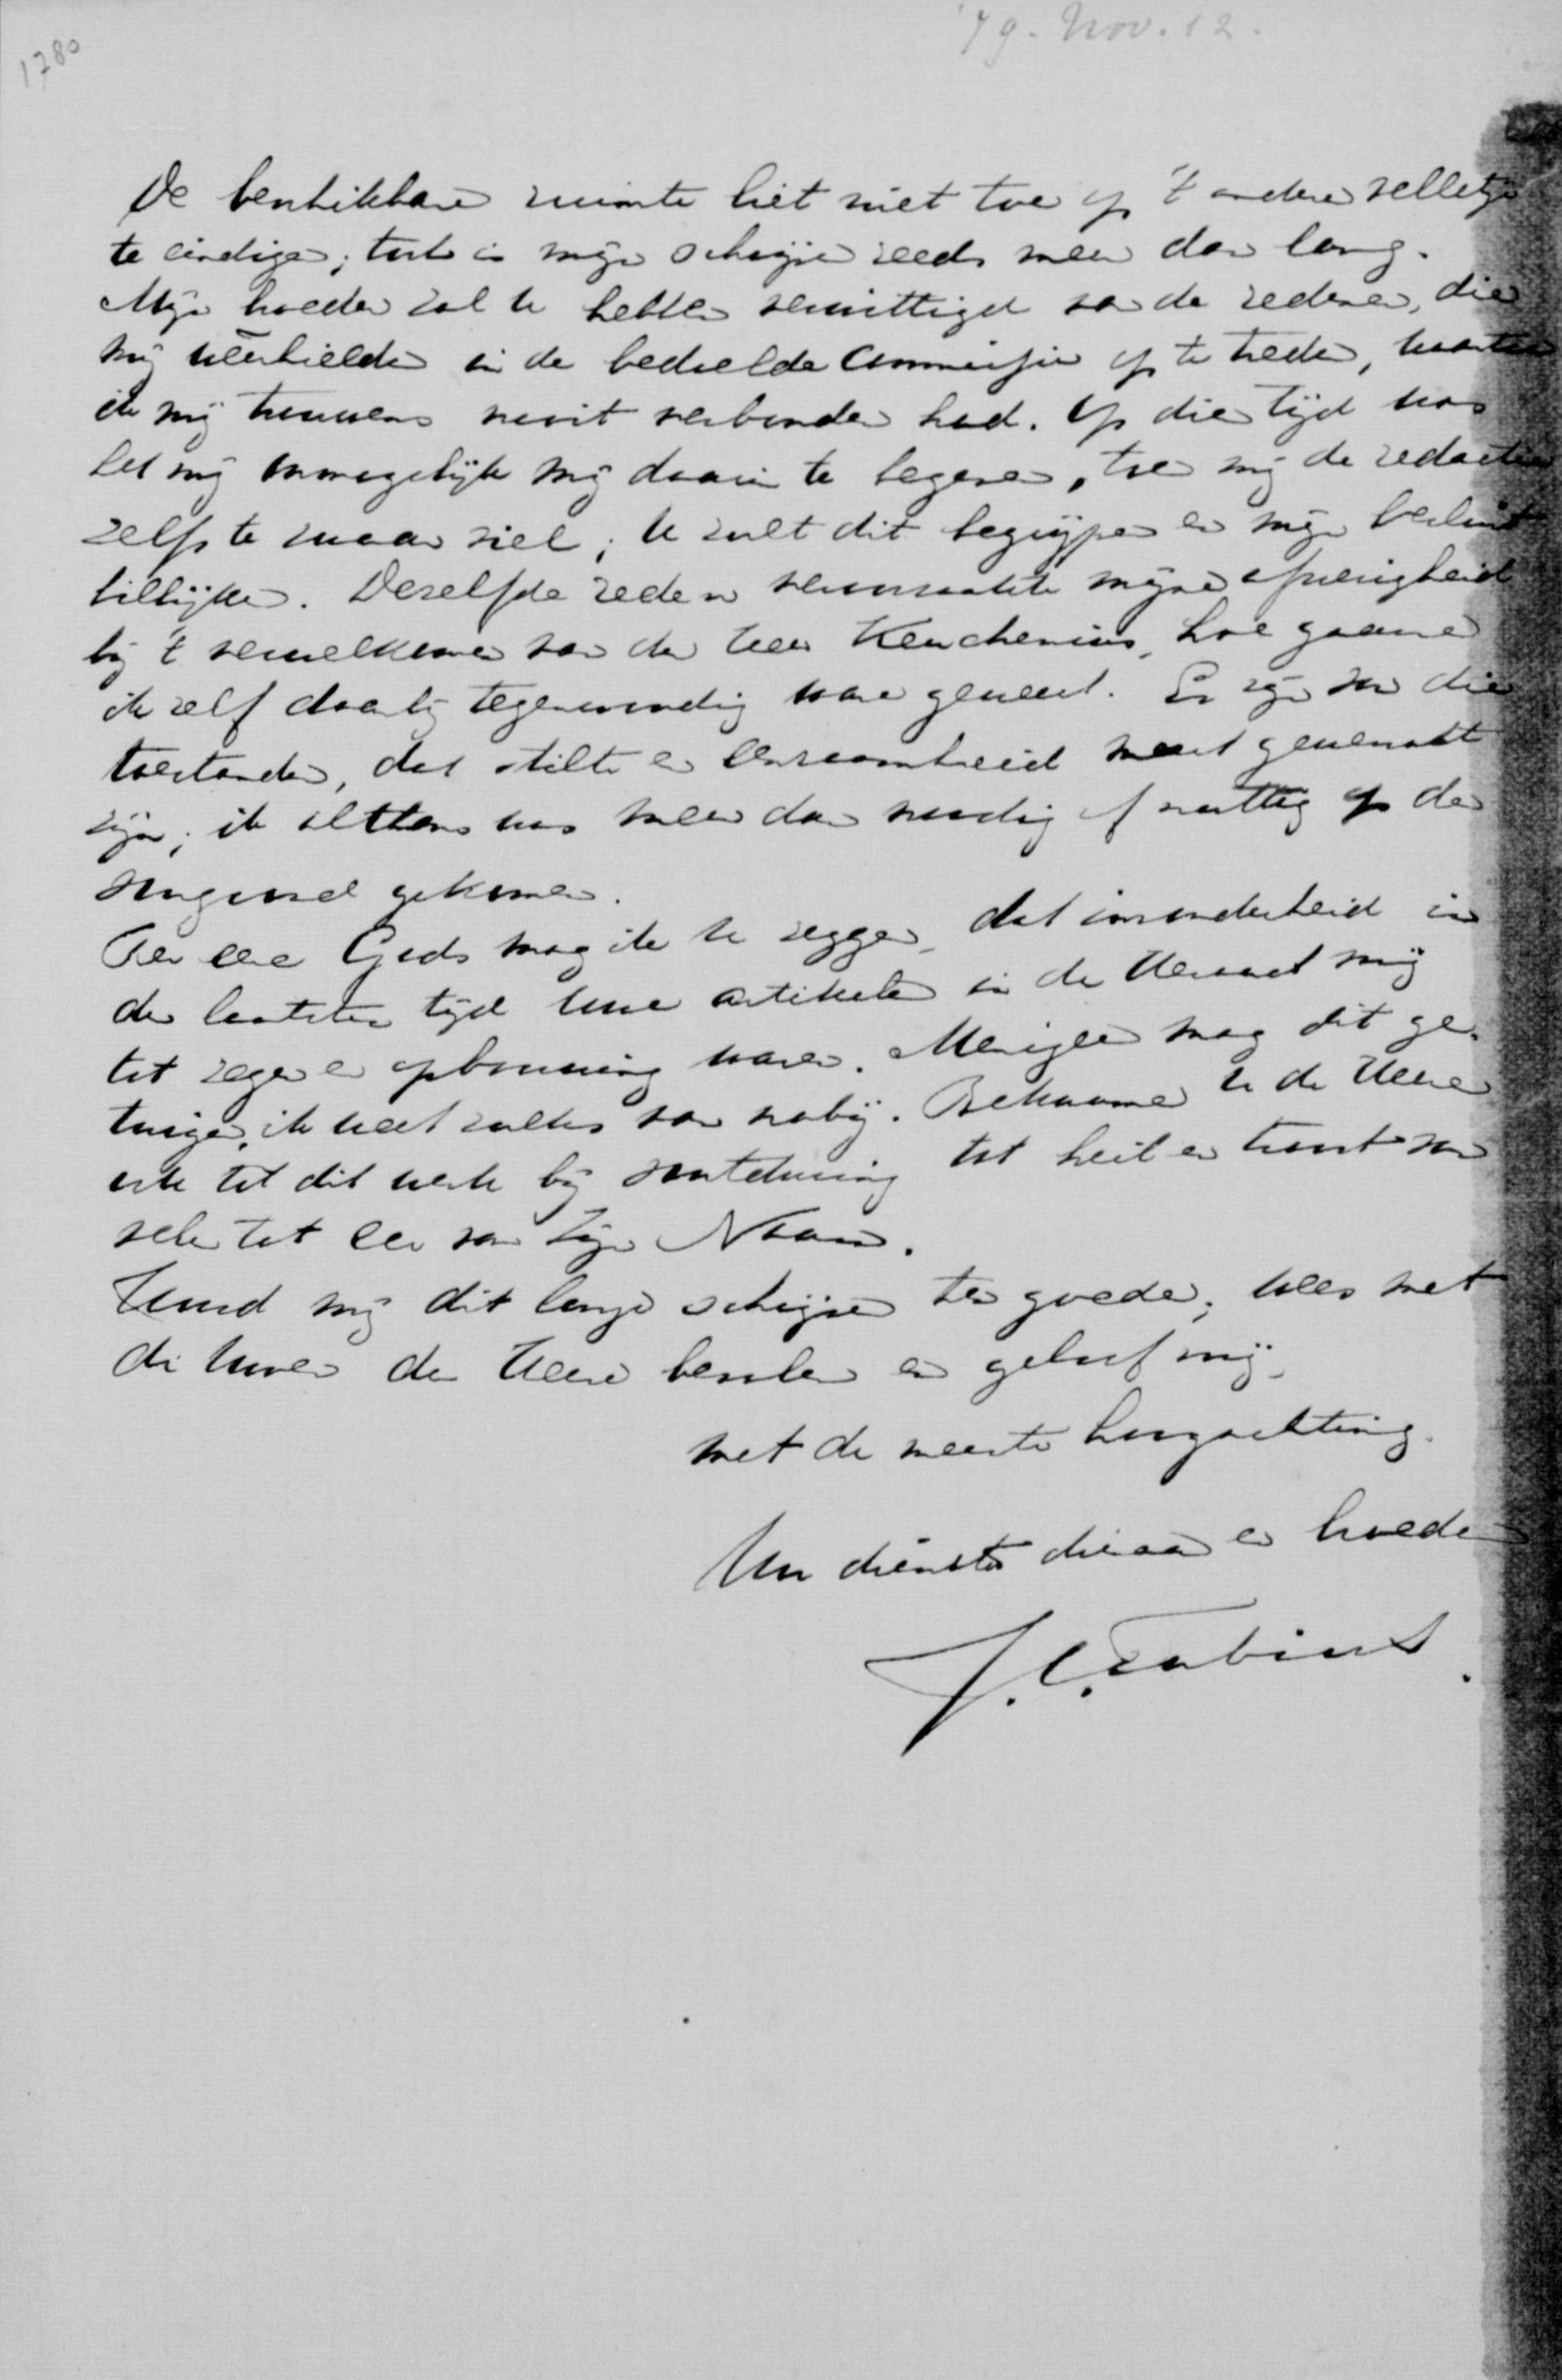 '79. Nov. 12.
1780
De beschikbare ruimte liet niet toe op 't andere velletje
te eindigen; toch is mijn schrijven reeds meer dan lang.
Mijn broeder zal U hebben verwittigd van de redenen, die
mij weerhielden in de bedoelde Commissie op te treden, waartoe
ik mij trouwens nooit verbonden had. Op dien tijd was
het mij onmogelijk mij daarin te begeven, toen mij de redactie
zelfs te zwaar viel; U zult dit begrijpen en mijn besluit
billijken. Dezelfde reden veroorzaakte mijne afwezigheid
bij 't verwelkomen van den Heer Keuchenius, hoe gaarne
ik zelf daarbij tegenwoordig ware geweest. Er zijn van die
toestanden, dat stilte en eenzaamheid meest gewenscht
zijn; ik althans was meer dan noodig of nuttig op den
voorgrond gekomen.
Ter eere Gods mag ik U zeggen, dat inzonderheid in
den laatsten tijd Uwe artikelen in de Heraut mij
tot zegen en opbouwing waren. Menigeen mag dit ge-
tuigen, ik weet zulks van nabij. Bekwame U de Heere
ook tot dit werk bij voortduring tot heil en troost van
velen tot eer van Zijn Naam.
Houd mij dit lange schrijven ten goede; wees met
de Uwen den Heere bevolen en geloof mij,
met de meeste hoogachting.
Uw dienstv. dienaar en broeder
J.C. Fabius.